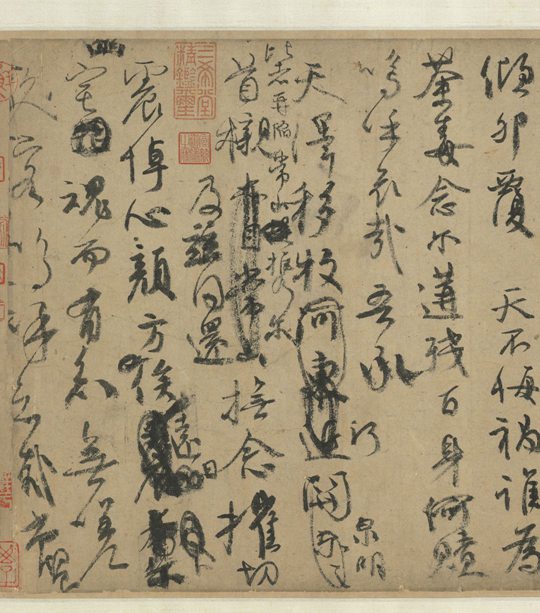 傾卵覆 天不悔禍誰為
荼毒念爾遘殘百身何贖
嗚呼哀哉吾承
天澤移牧河東近河關
泉明
比者再陷常山攜爾
首櫬 及茲同還
撫念摧切
震悼心顏方俟遠日
爾幽宅魂而有知無嗟
久客嗚呼哀哉尚饗
三希堂精鑑璽